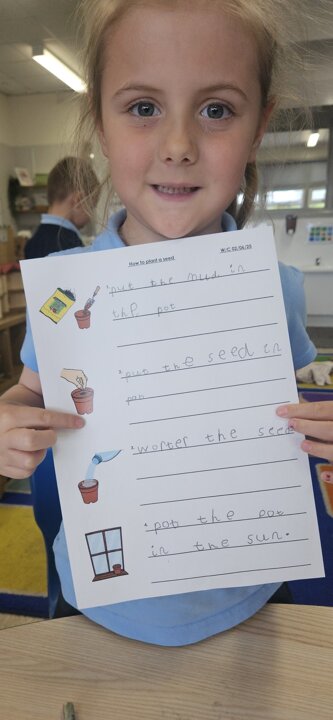 How to plant a seed W/C 02/06/25
put the mud in
the pot
put the seed in
pot
worter the seed
pot the pot
in the sun.